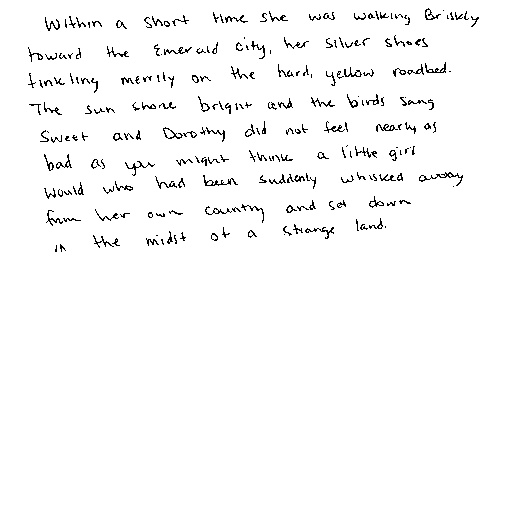 Within a short time she was walking Briskly
toward the Emerald City, her silver shoes
tinkling merrily on the hard, yellow roadbed.
The sun shone bright and the birds sang
Sweet and Dorothy did not feel nearly as
bad as you might think a little girl
would who had been suddenly whisked away
from her own country and set down
in the midst of a strange land.